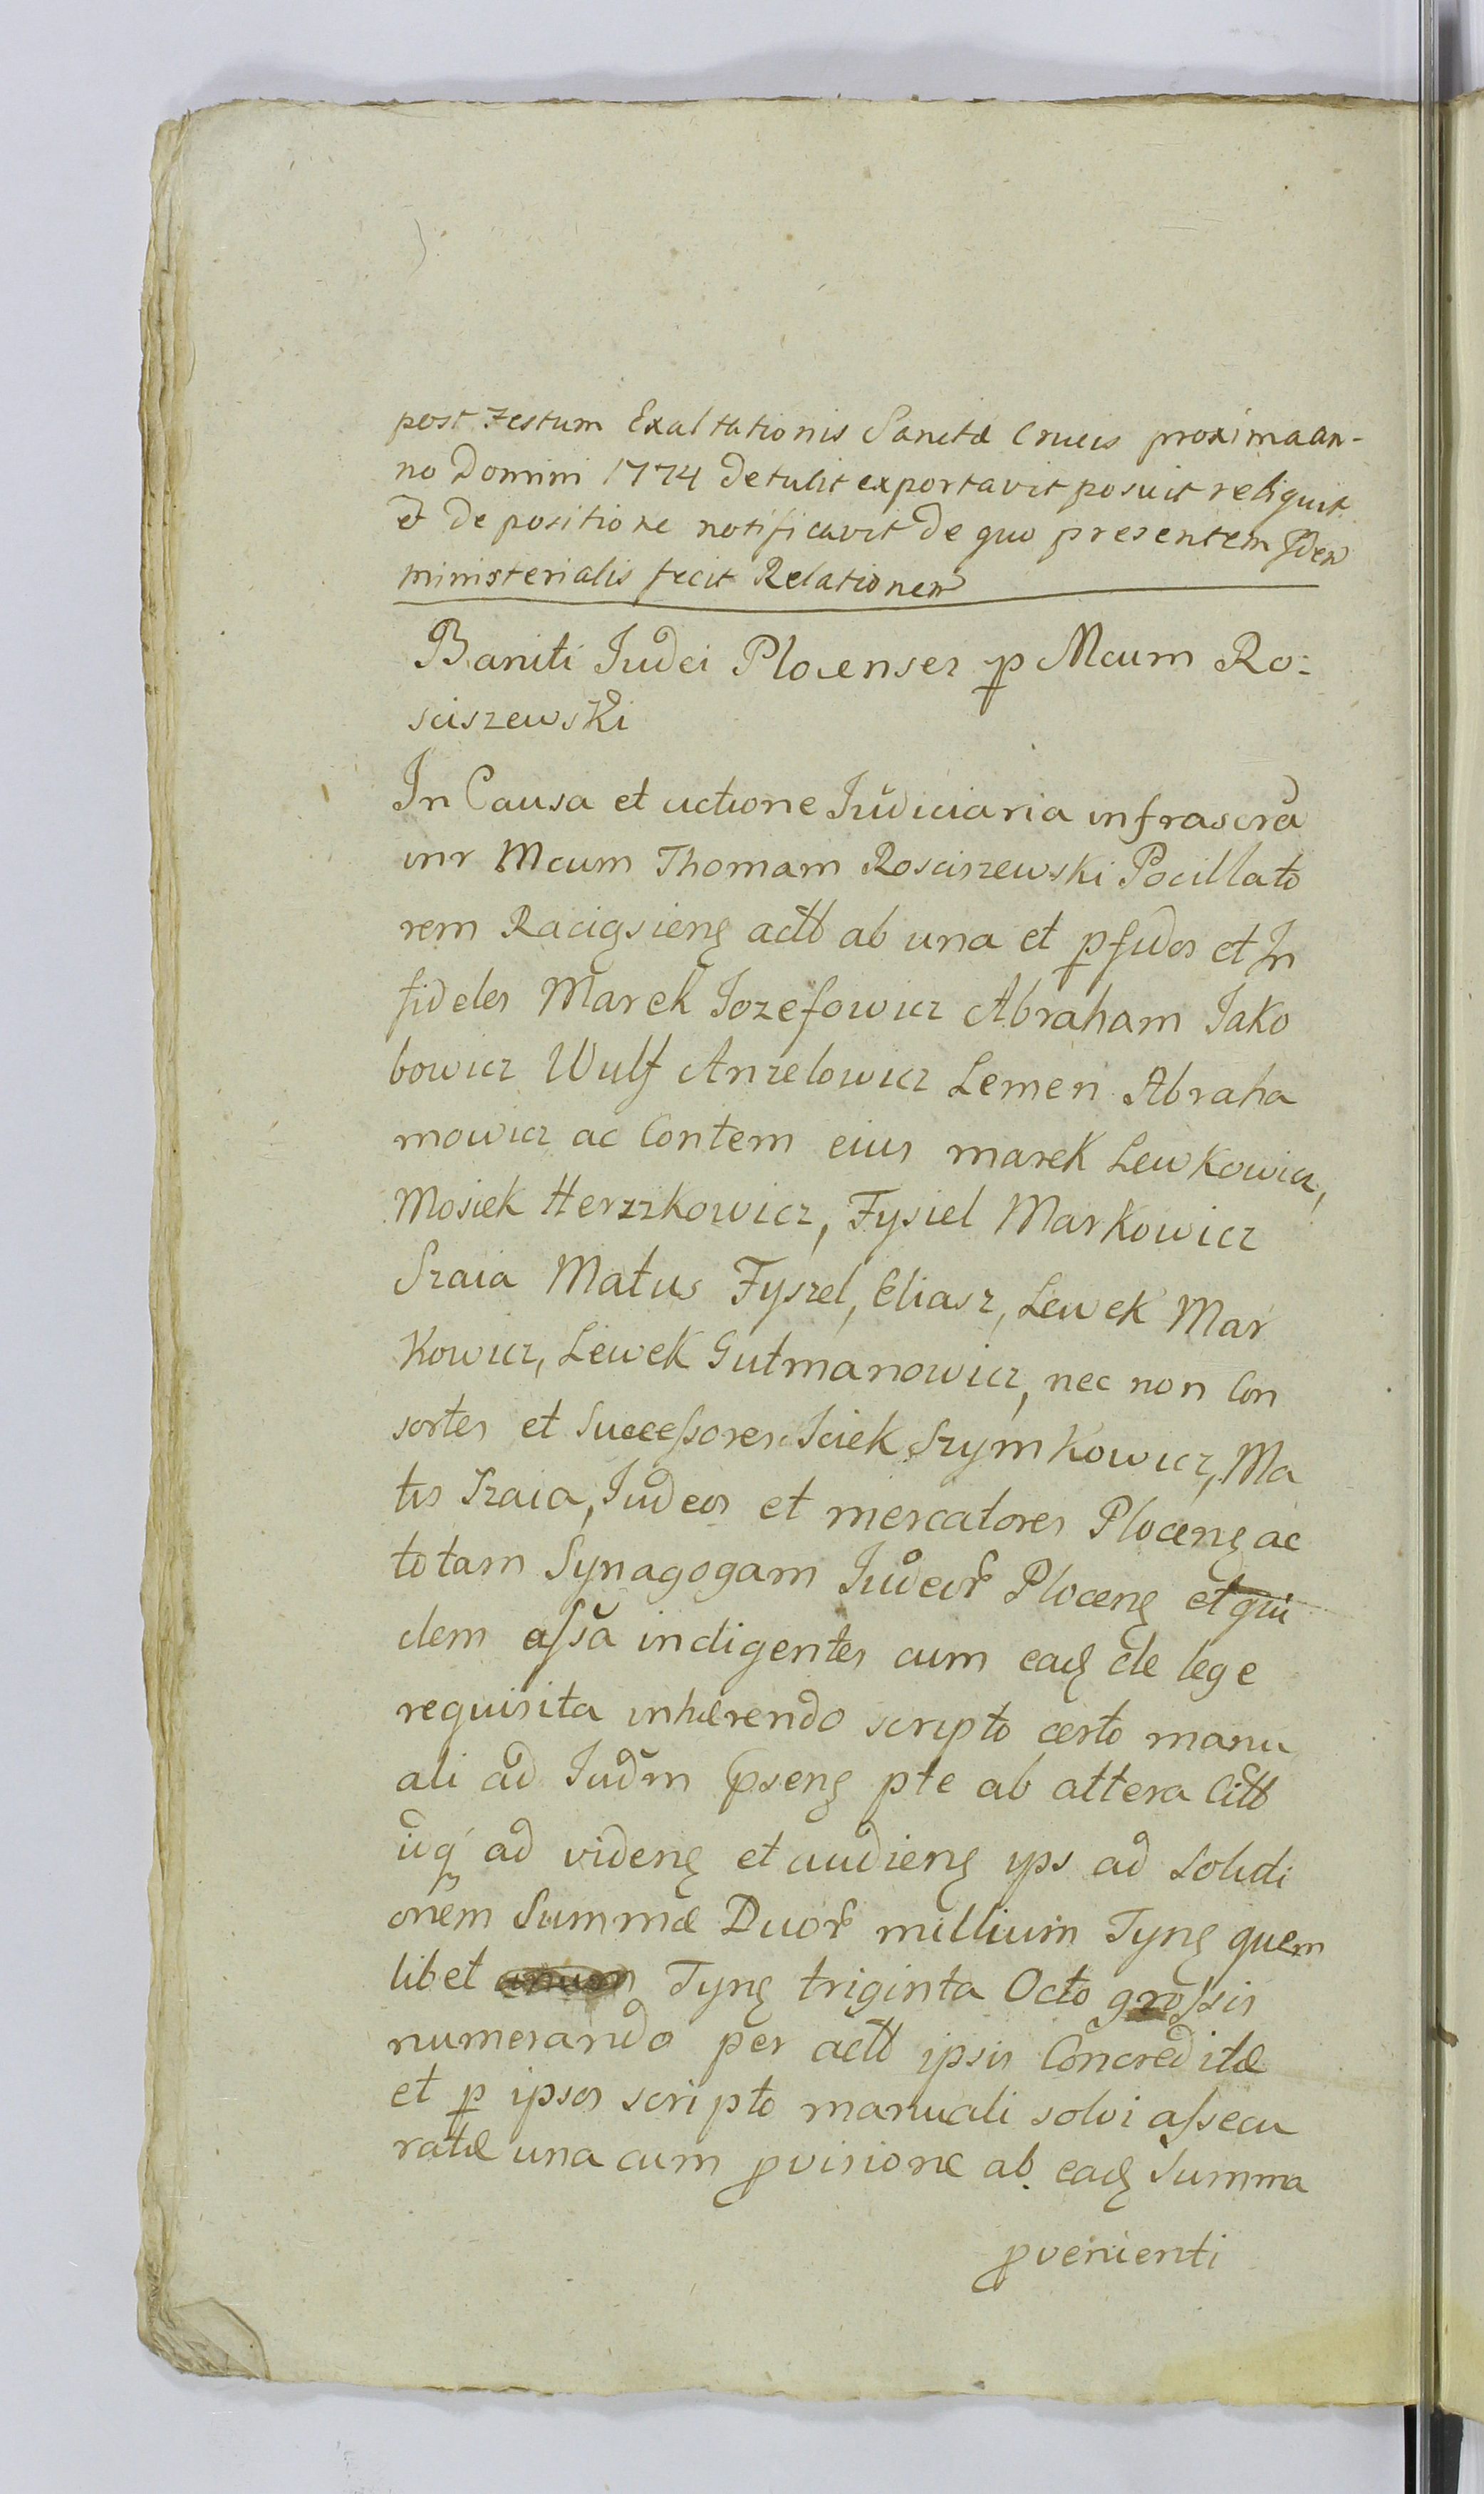 post Festum Exaltationis Sanctæ Crucis proxima an-
no Domini 1774 detulit exportavit posuit reliquit
et de positione notificavit de quo presentem Iden
ministerialis fecit Relationem
Baniti Iudei Plocenses p Mcum Ro:
sciszewski
In Causa et actione Iudiciaria infrascra
inr Mcum Thomam Rosciszewski Pocillato
rem Raciąsieng actt ab una et pfidos et In
fideles Marek Iozefowicz Abraham Iako
bowicz Wulf Anzelowicz Lemen Abraha
mowicz ac Contem eius marek Lewkowicz,
Mosiek Herszkowicz, Fysiel Markowicz
Szaia Matus Fyszel, Eliasz, Lewek Mar
Kowicz, Lewek Gutmanowicz, nec non Con
sortes et Successores Iciek Szymkowicz, Ma
tis Szaia, Iudeos et mercatores Ploceng ac
totam Synagogam Iudeor Ploceng et qui
dem assa indigentes cum ead de lege
requisita inhærendo scripto certo manu
ali ad Iudm pseng pte ab altera Citt
idq ad videng et audieng ips ad Soluti
onem Summæ Duor millium Tyng quem
libet Tyng triginta Octo grossis
numerando per actt ipsis Concreditæ
et p ipsos scripto manuali solvi assecu
ratæ una cum pvisione ab ead Summa
pvenienti